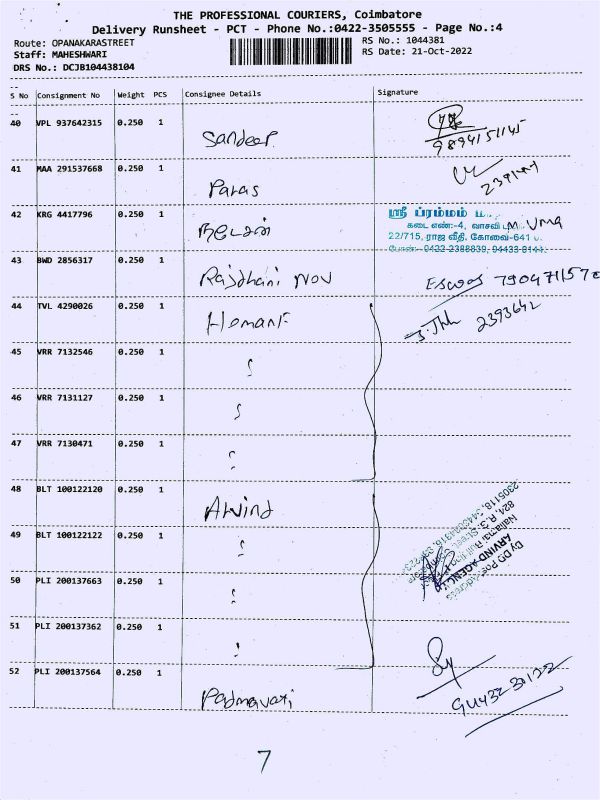 THE PROFESSIONAL COURIERS, Coimbatore
Delivery Runsheet - PCT - Phone No.:0422-3505555 - Page No.:4
Route: OPANAKARASTREET RS No.: 1044381
Staff: MAHESHWARI RS Date: 21-Oct-2022
DRS No.: DCJB104438104
S No Consignment No Weight PCS Consignee Details Signature
40 VPL 937642315 0.250 1 Sandeep
9894151145
41 MAA 291537668 0.250 1 Paras
42 KRG 4417796 0.250 1 நடேசன்
ஸ்ரீ ப்ரம்மம்
கடை எண்:-4, வாசவி
M. Uma
22/715, ராஜ வீதி, கோவை-641
போன்:- 0422-2388839, 94433-8144
43 BWD 2856317 0.250 1 Rajdhani Nov
7904711570
44 TVL 4290026 0.250 1 Hemant
2393642
45 VRR 7132546 0.250 1
46 VRR 7131127 0.250 1
47 VRR 7130471 0.250 1
48 BLT 100122120 0.250 1 Arvind
49 BLT 100122122 0.250 1
ARVIND AGENCY
50 PLI 200137663 0.250 1
51 PLI 200137362 0.250 1
52 PLI 200137564 0.250 1 Padmavati
7